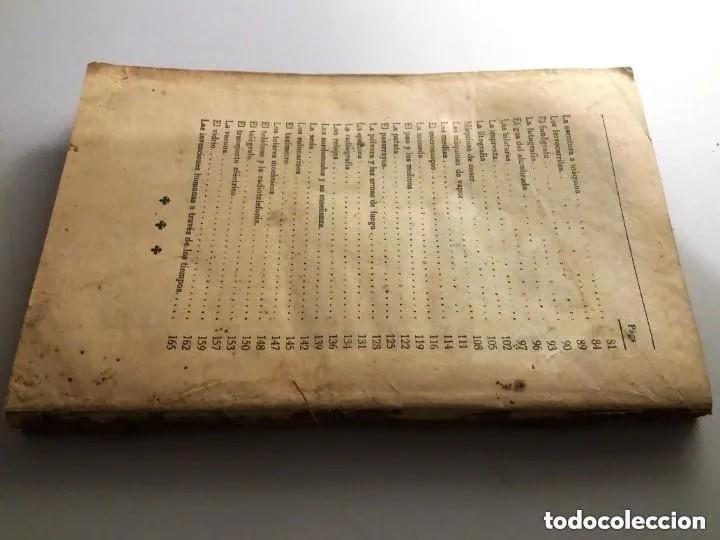 Págs.
La escritura a máquina 81
Los ferrocarriles 84
El fonógrafo 89
La fotografía 90
El gas del alumbrado 93
Las hilaturas 96
La imprenta 97
La litografía 102
Máquinas de coser 105
Las máquinas de vapor 108
Las medias 111
El microscopio 114
La moneda 116
El pan y los molinos 119
La patata 122
El pararrayos 125
La pólvora y las armas de fuego 128
La quinina 131
La radiografía 134
Los relojes 136
Los sordomudos y su enseñanza 139
La seda 142
Los submarinos 145
El taxímetro 147
Los telares mecánicos 148
El teléfono y la radiotelefonía 150
El telégrafo 153
El transporte eléctrico 157
La vacuna 159
El vidrio 162
Las invenciones humanas a través de los tiempos 165
todocoleccion.net